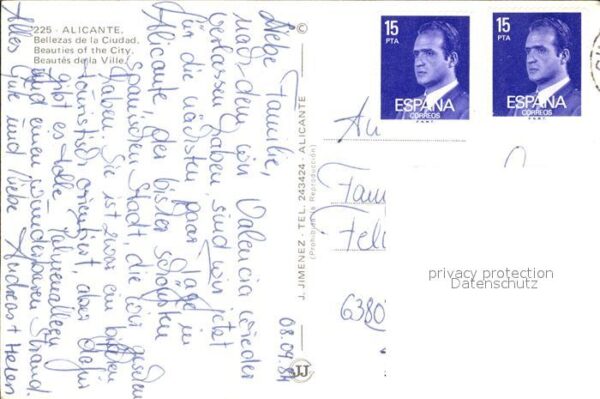 225 - ALICANTE.
Bellezas de la Ciudad.
Beauties of the City.
Beautés de la Ville.
Liebe Familie,
nachdem wir Valencia wieder
verlassen haben, sind wir jetzt
für die nächsten paar Tage in
Alicante, der bisher schönsten
spanischen Stadt, die wir gesehen
haben. Sie ist zwar ein bißchen
touristisch orientiert, aber dafür
gibt es tolle Palmenalleen
und einen wunderbaren Strand.
Alles Gute und Liebe Andreas + Helen
08.09.84
©
J. JIMENEZ - TEL. 243424 - ALICANTE
(Prohibida la Reproducción)
JJ
15
PTA
ESPAÑA
CORREOS
15
PTA
ESPAÑA
CORREOS
An
Fam
Fel
6380
privacy protection
Datenschutz